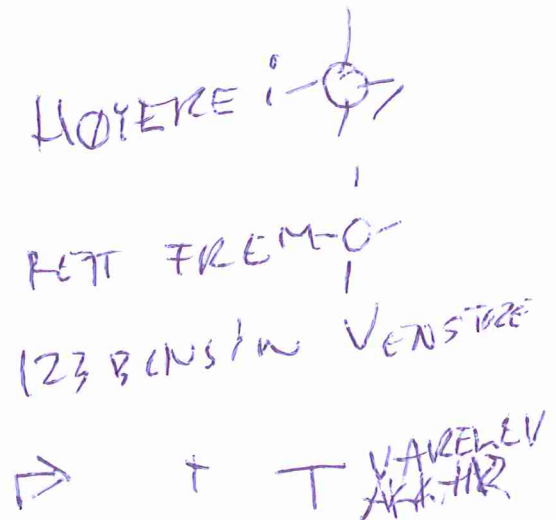 HØYERE i
RETT FREM
123 BENSIN VENSTRE
VARELEV